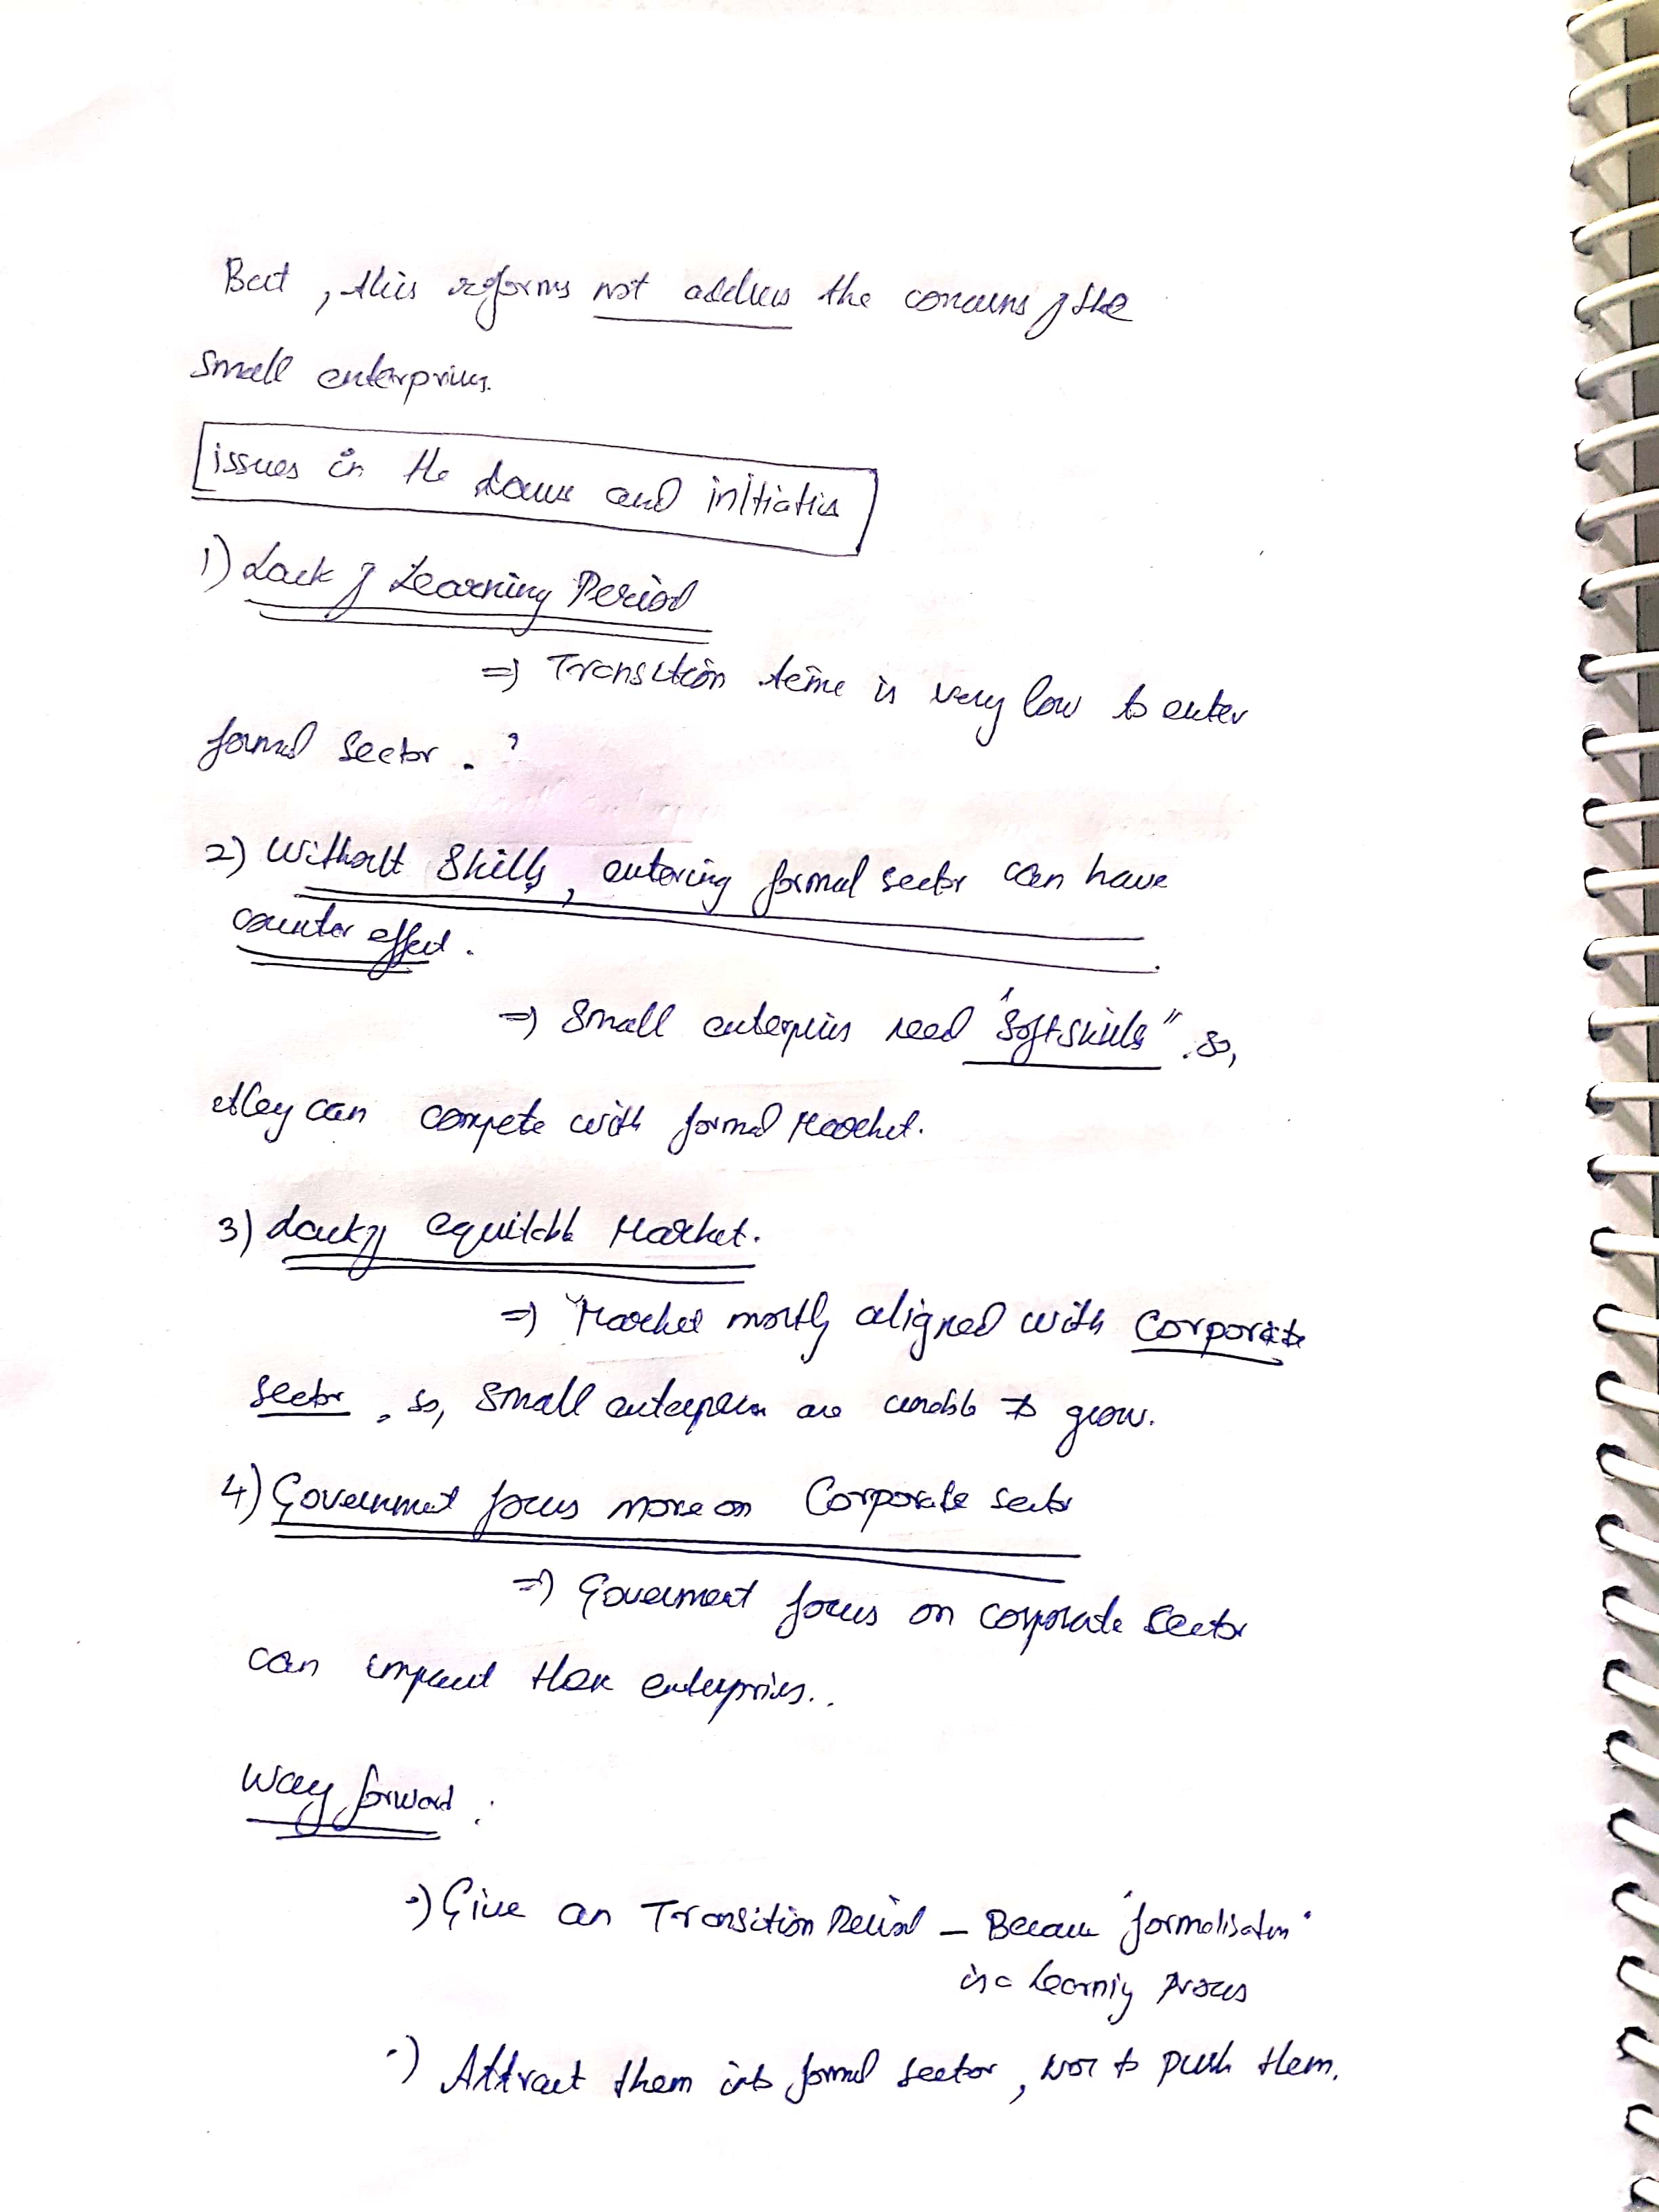 But, this reforms not address the concerns of the
small enterprises.
issues in the Laws and initiatis
1) Lack of Learning Period
=) Transition time is very low to enter
formal sector.
2) Without Skills, entering formal sector can have
counter effect.
=) Small enterprises need "Soft skills". So,
they can compete with formal Market.
3) Lack of equitable Market.
=) Market mostly aligned with Corporate
Sector. so, small enterprises are unable to grow.
4) Government focus more on Corporate sector
=) Government focus on corporate Sector
can impact these enterprises..
Way forward:
•) Give an Transition Period - Because 'formalisation'
is a Learning process
•) Attract them into formal sector, not to push them.